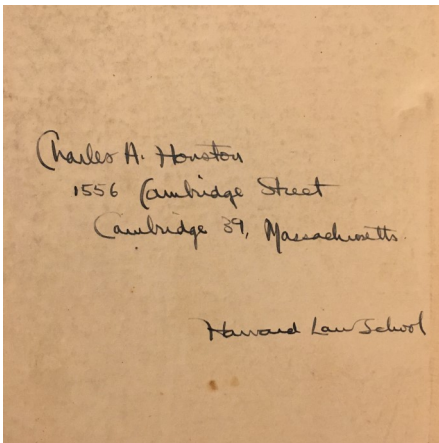 Charles A. Houston
1556 Cambridge Street
Cambridge 39, Massachusetts.
Harvard Law School